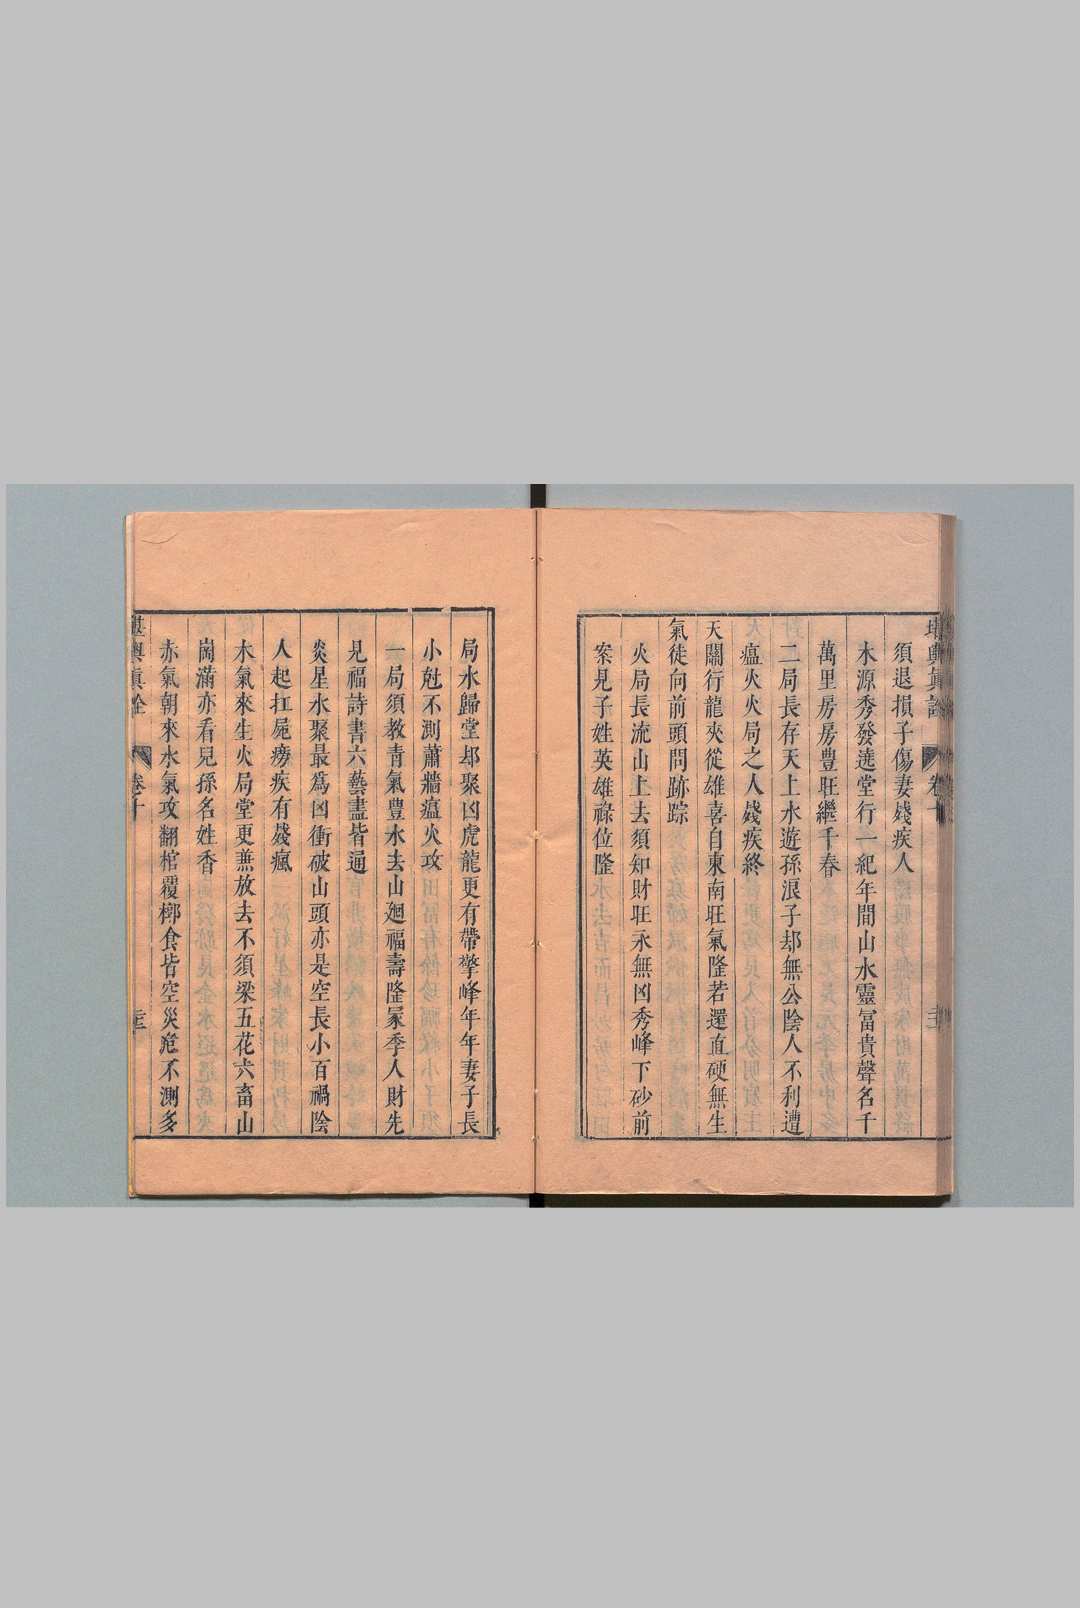 堪輿眞詮 卷十
須退損子傷妻殘疾人
水源秀發遶堂行一紀年間山水靈富貴聲名千
萬里房房豐旺繼千春
二局長存天上水遊孫浪子却無公陰人不利遭
瘟火火局之人殘疾終
天關行龍夾從雄喜自東南旺氣隆若還直硬無生
氣徒向前頭問跡踪
火局長流山上去須知財旺永無凶秀峰下砂前
案見子姓英雄祿位隆
局水歸堂却聚凶虎龍更有帶擎峰年年妻子長
小尅不測蕭牆瘟火攻
一局須教青氣豐水去山廻福壽隆冢季人財先
見福詩書六藝盡皆通
炎星水聚最爲凶衝破山頭亦是空長小百禍陰
人起扛屍癆疾有殘瘋
木氣來生火局堂更無放去不須梁五花六畜山
崗滿亦看兒孫名姓香
赤氣朝來水氣攻翻棺覆槨食皆空災危不測多
堪輿眞詮 卷十